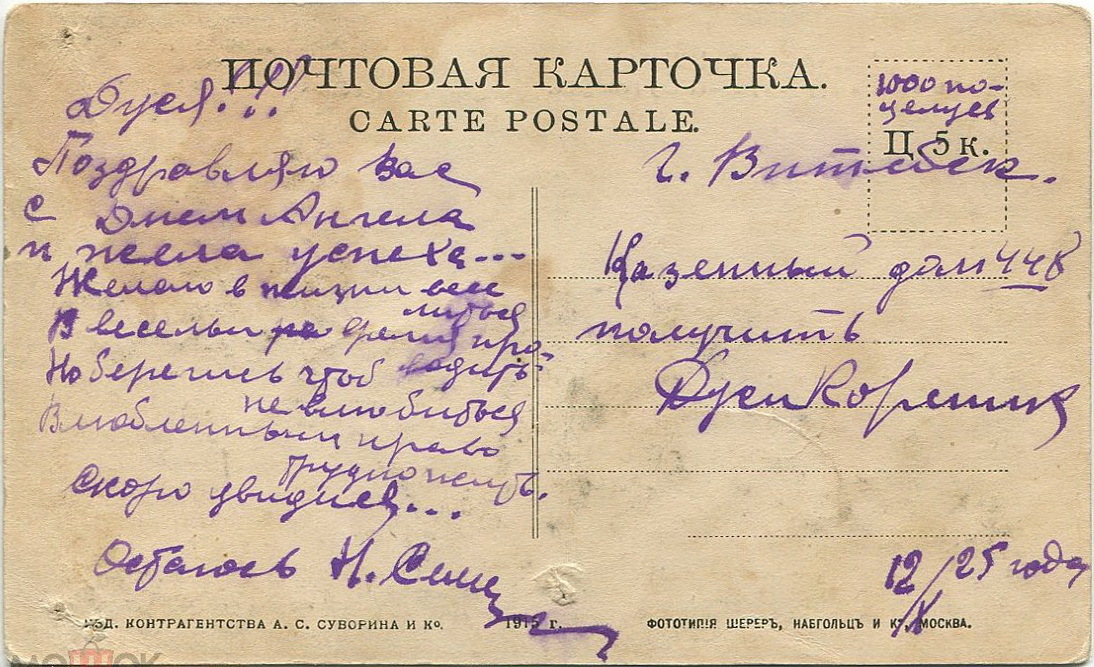 ПОЧТОВАЯ КАРТОЧКА.
CARTE POSTALE.
1000 по-
целуев
Ц. 5 к.
Дуся!!!
Поздравляю Вас
с Днем Ангела
и жела успеха...
Желаю в жизни веселиться
В весельи время проводить
Но берегись чтоб не влюбиться
Влюбленным право трудно жить.
Скоро увидися...
Остаюсь Н.
г. Витебск.
Казенный дом 448
получить
Дуси
12/X 25 года
ИЗД. КОНТРАГЕНТСТВА А. С. СУВОРИНА И Ко.
1915 г.
ФОТОТИПІЯ ШЕРЕРЪ, НАБГОЛЬЦЪ И Ко, МОСКВА.
МОШОК